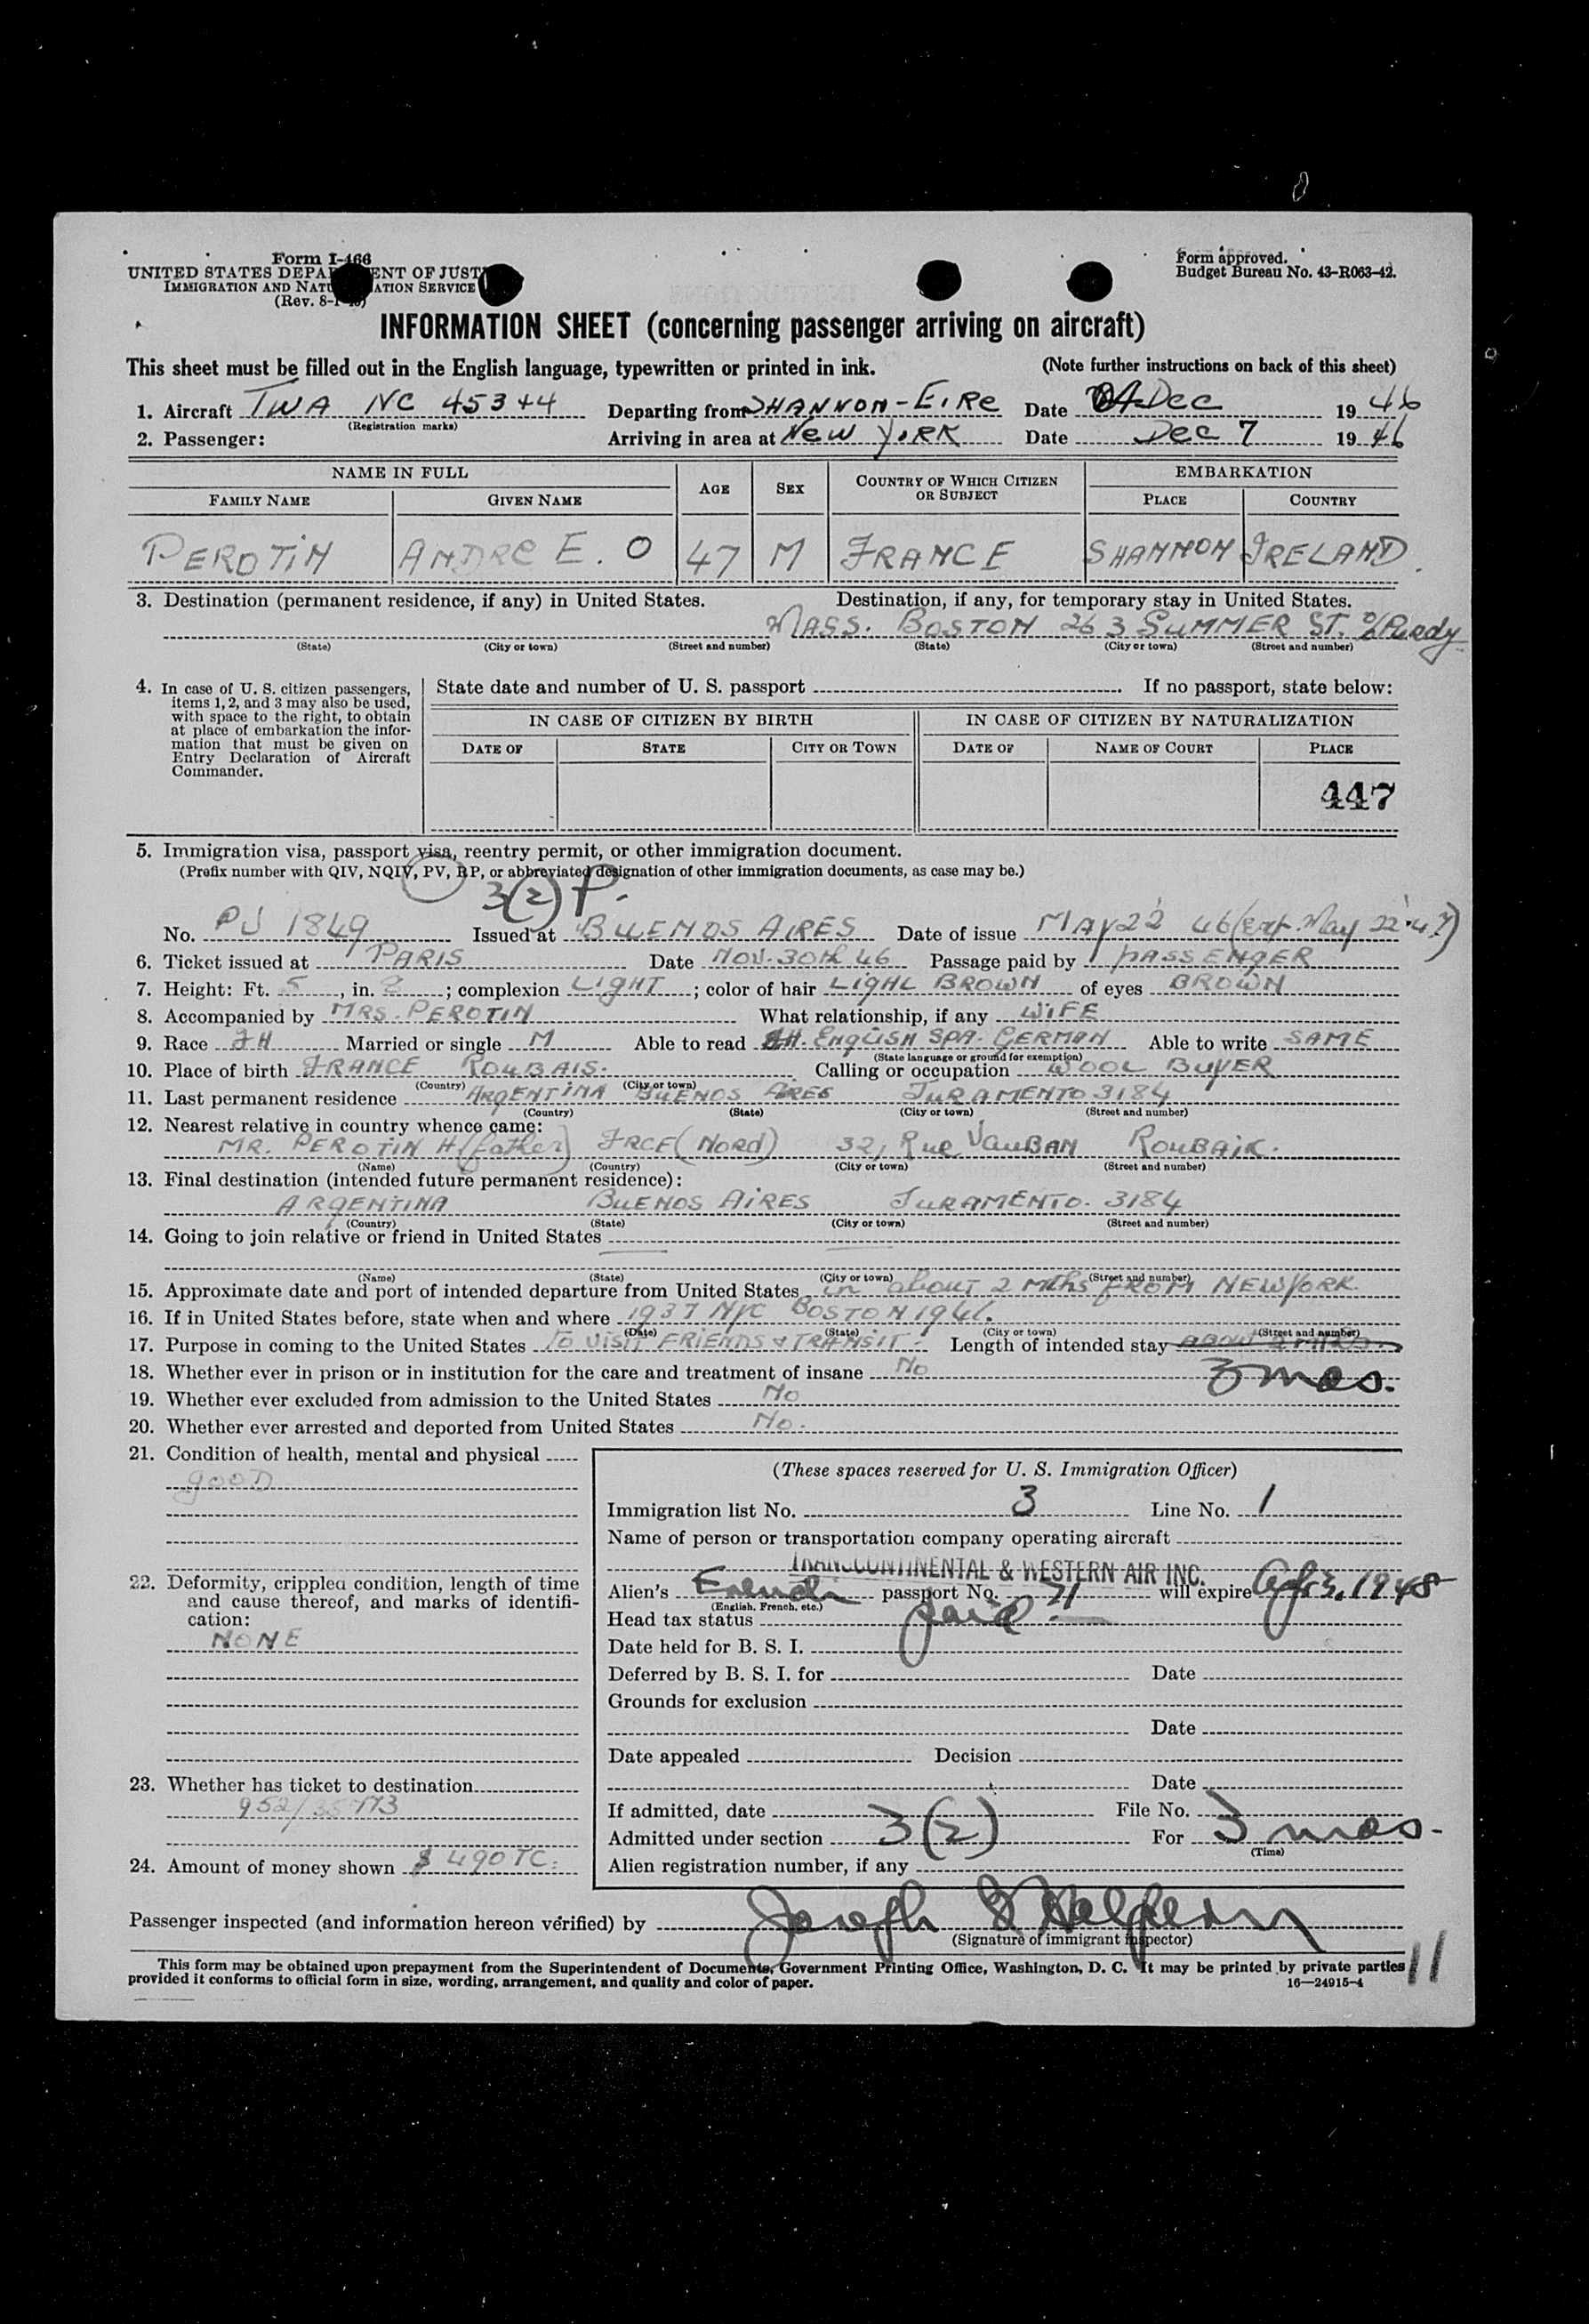 Form I-466
UNITED STATES DEPARTMENT OF JUSTICE
IMMIGRATION AND NATURALIZATION SERVICE
(Rev. 8-1-45)
Form approved.
Budget Bureau No. 43-R063-42.
INFORMATION SHEET (concerning passenger arriving on aircraft)
This sheet must be filled out in the English language, typewritten or printed in ink. (Note further instructions on back of this sheet)
1. Aircraft TWA NC 45344 Departing from SHANNON-EIRE Date Dec 1946
(Registration marks)
2. Passenger: Arriving in area at New YORK Date Dec 7 1946
NAME IN FULL AGE SEX COUNTRY OF WHICH CITIZEN OR SUBJECT EMBARKATION
FAMILY NAME GIVEN NAME PLACE COUNTRY
PEROTIN ANDRE E. O 47 M FRANCE SHANNON IRELAND.
3. Destination (permanent residence, if any) in United States. Destination, if any, for temporary stay in United States.
MASS. BOSTON 263 SUMMER ST. c/o Purdy
(State) (City or town) (Street and number) (State) (City or town) (Street and number)
4. In case of U. S. citizen passengers, items 1, 2, and 3 may also be used, with space to the right, to obtain at place of embarkation the information that must be given on Entry Declaration of Aircraft Commander.
State date and number of U. S. passport If no passport, state below:
IN CASE OF CITIZEN BY BIRTH IN CASE OF CITIZEN BY NATURALIZATION
DATE OF STATE CITY OR TOWN DATE OF NAME OF COURT PLACE
447
5. Immigration visa, passport visa, reentry permit, or other immigration document.
(Prefix number with QIV, NQIV, PV, RP, or abbreviated designation of other immigration documents, as case may be.)
3(2) P.
No. PV 1849 Issued at BUENOS AIRES Date of issue MAY 22 46 (exp. May 22-47)
6. Ticket issued at PARIS Date NOV. 30th 46 Passage paid by PASSENGER
7. Height: Ft. 5, in. 2; complexion LIGHT; color of hair LIGHt BROWN of eyes BROWN
8. Accompanied by MRS. PEROTIN What relationship, if any WIFE
9. Race FH Married or single M Able to read ENGLISH SPA. GERMAN Able to write SAME
(State language or ground for exemption)
10. Place of birth FRANCE ROUBAIS. Calling or occupation WOOL BUYER
(Country) (City or town)
11. Last permanent residence ARGENTINA BUENOS AIRES JURAMENTO 3184
(Country) (State) (City or town) (Street and number)
12. Nearest relative in country whence came:
MR. PEROTIN H (father) FRCE (NORD) 32, Rue VAUBAN ROUBAIX.
(Name) (Country) (City or town) (Street and number)
13. Final destination (intended future permanent residence):
ARGENTINA BUENOS AIRES JURAMENTO. 3184
(Country) (State) (City or town) (Street and number)
14. Going to join relative or friend in United States
(Name) (State) (City or town) (Street and number)
15. Approximate date and port of intended departure from United States in about 2 Mths FROM NEW YORK.
16. If in United States before, state when and where 1937 NYC BOSTON 1946.
(Date) (State) (City or town) (Street and number)
17. Purpose in coming to the United States TO VISIT FRIENDS & TRANSIT Length of intended stay
3 mos.
18. Whether ever in prison or in institution for the care and treatment of insane No
19. Whether ever excluded from admission to the United States No
20. Whether ever arrested and deported from United States No.
21. Condition of health, mental and physical
gooD
22. Deformity, crippled condition, length of time and cause thereof, and marks of identification:
NONE
23. Whether has ticket to destination
24. Amount of money shown $ 490 TC.
(These spaces reserved for U. S. Immigration Officer)
Immigration list No. 3 Line No. 1
Name of person or transportation company operating aircraft
TRANSCONTINENTAL & WESTERN AIR INC.
Alien's French passport No. 71 will expire Apr 3, 1948
(English, French, etc.)
Head tax status paid
Date held for B. S. I.
Deferred by B. S. I. for Date
Grounds for exclusion
Date
Date appealed Decision
Date
If admitted, date File No.
Admitted under section 3(2) For 3 mos.
(Time)
Alien registration number, if any
Passenger inspected (and information hereon verified) by Joseph Halpern
(Signature of immigrant inspector)
This form may be obtained upon prepayment from the Superintendent of Documents, Government Printing Office, Washington, D. C. It may be printed by private parties
provided it conforms to official form in size, wording, arrangement, and quality and color of paper. 16—24915-4
11